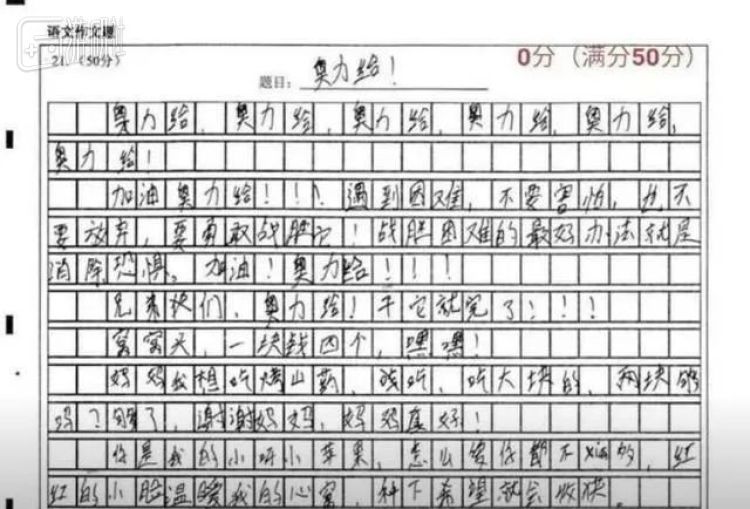 语文作文题
21.（50分）
0分（满分50分）
题目：奥力给！
奥力给，奥力给，奥力给，奥力给，奥力给，
奥力给！
加油奥力给！！！遇到困难，不要害怕，也不
要放弃，要勇敢战胜它！战胜困难的最好办法就是
消除恐惧。加油！奥力给！！！！
兄弟们，奥力给！干它就完了！！！
窝窝头，一块钱四个，嘿嘿！
妈妈我想吃烤山药，戏吃，吃大块的，两块够
吗？够了，谢谢妈妈，妈妈真好！
你是我的小呀小苹果，怎么爱你都不xian的，红
红的小脸温暖我的心窝，种下希望就会收获。